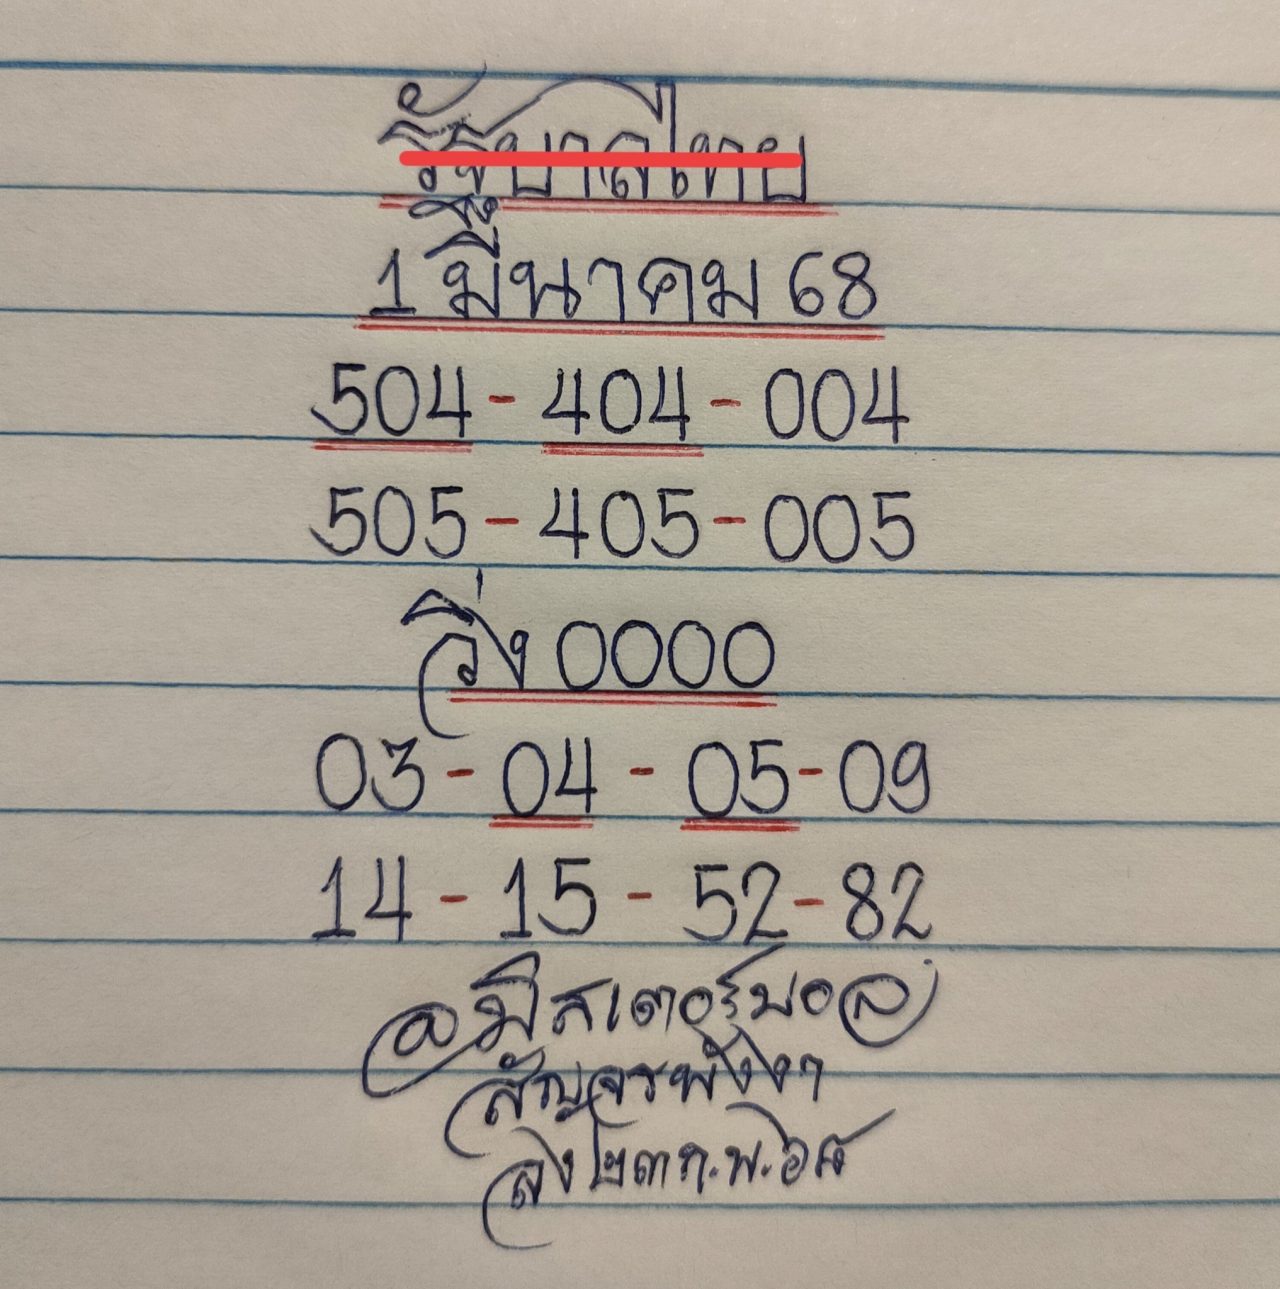 รัฐบาลไทย
1 มีนาคม 68
504 - 404 - 004
505 - 405 - 005
วิ่ง 0000
03 - 04 - 05 - 09
14 - 15 - 52 - 82
@มิสเตอร์บอล
สัญจรพังงา
ลง ๒๓ ก.พ. ๖๘